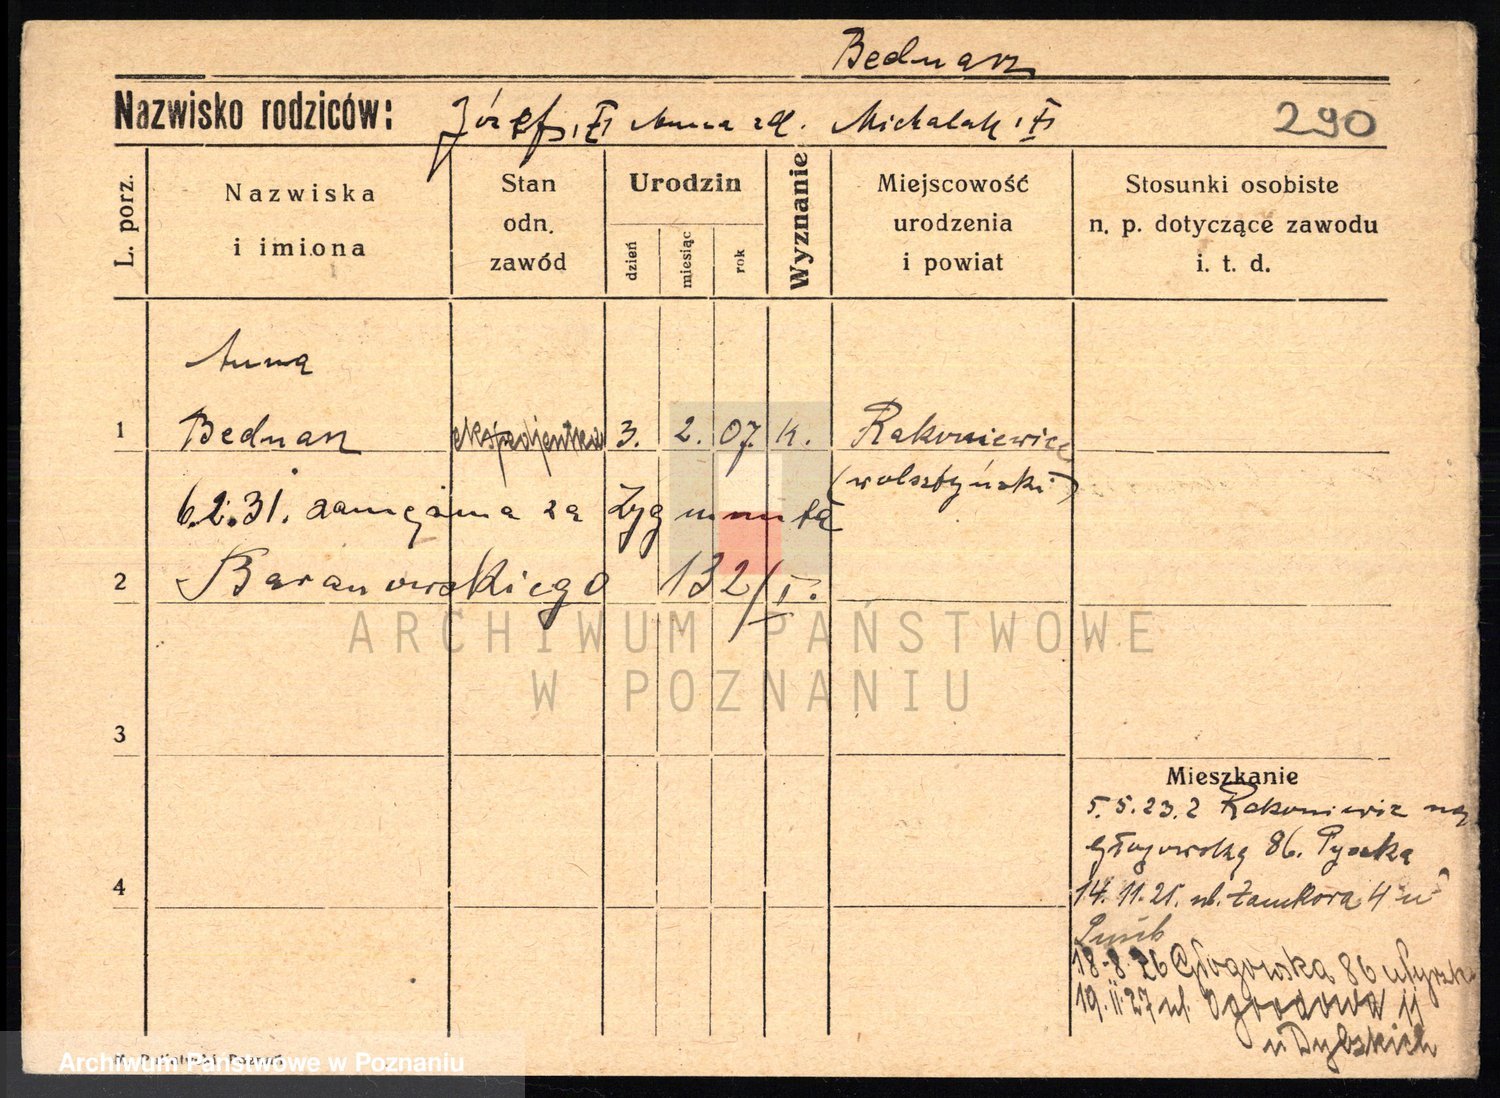 Bednarz
Nazwisko rodziców: Józef, Anna zd. Michalak
290
L. porz.
Nazwiska
i imiona
Stan
odn.
zawód
Urodzin
dzień
miesiąc
rok
Wyznanie
Miejscowość
urodzenia
i powiat
Stosunki osobiste
n. p. dotyczące zawodu
i. t. d.
Anna
1 Bednarz ekspedjentka 3. 2. 07. k. Rakoniewice
(wolsztyński)
6.2.31. zamężna za Zygmunta
2 Baranowskiego 132/I.
ARCHIWUM PAŃSTWOWE
W POZNANIU
3
Mieszkanie
5.5.23. z Rakoniewic na
Głogowską 86. Pyszka
4
14.11.25. ul. Zamkowa 4 u
18.8.26 Głogowska 86 u Pyszk
19.II.27 ul. Ogrodowa 11
u Dybskich
Poznań
Archiwum Państwowe w Poznaniu